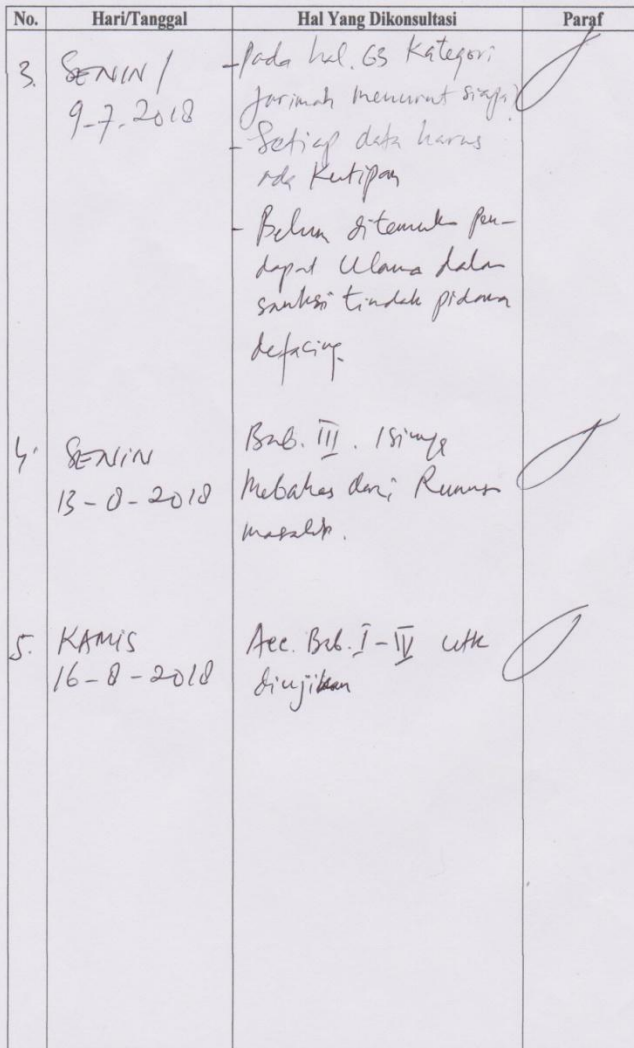 No. Hari/Tanggal Hal Yang Dikonsultasi Paraf
3. SENIN / - Pada hal. 63 Kategori
9-7-2018 Jarimah menurut siapa?
- Setiap data harus
ada Kutipan
- Belum ditemukan Pen-
dapat Ulama dalam
sanksi tindak pidana
defacing.
4. SENIN Bab. III. Isinya
13-8-2018 Mebahas dari Rumusan
masalah.
5. KAMIS Acc. Bab. I-IV utk
16-8-2018 diujikan